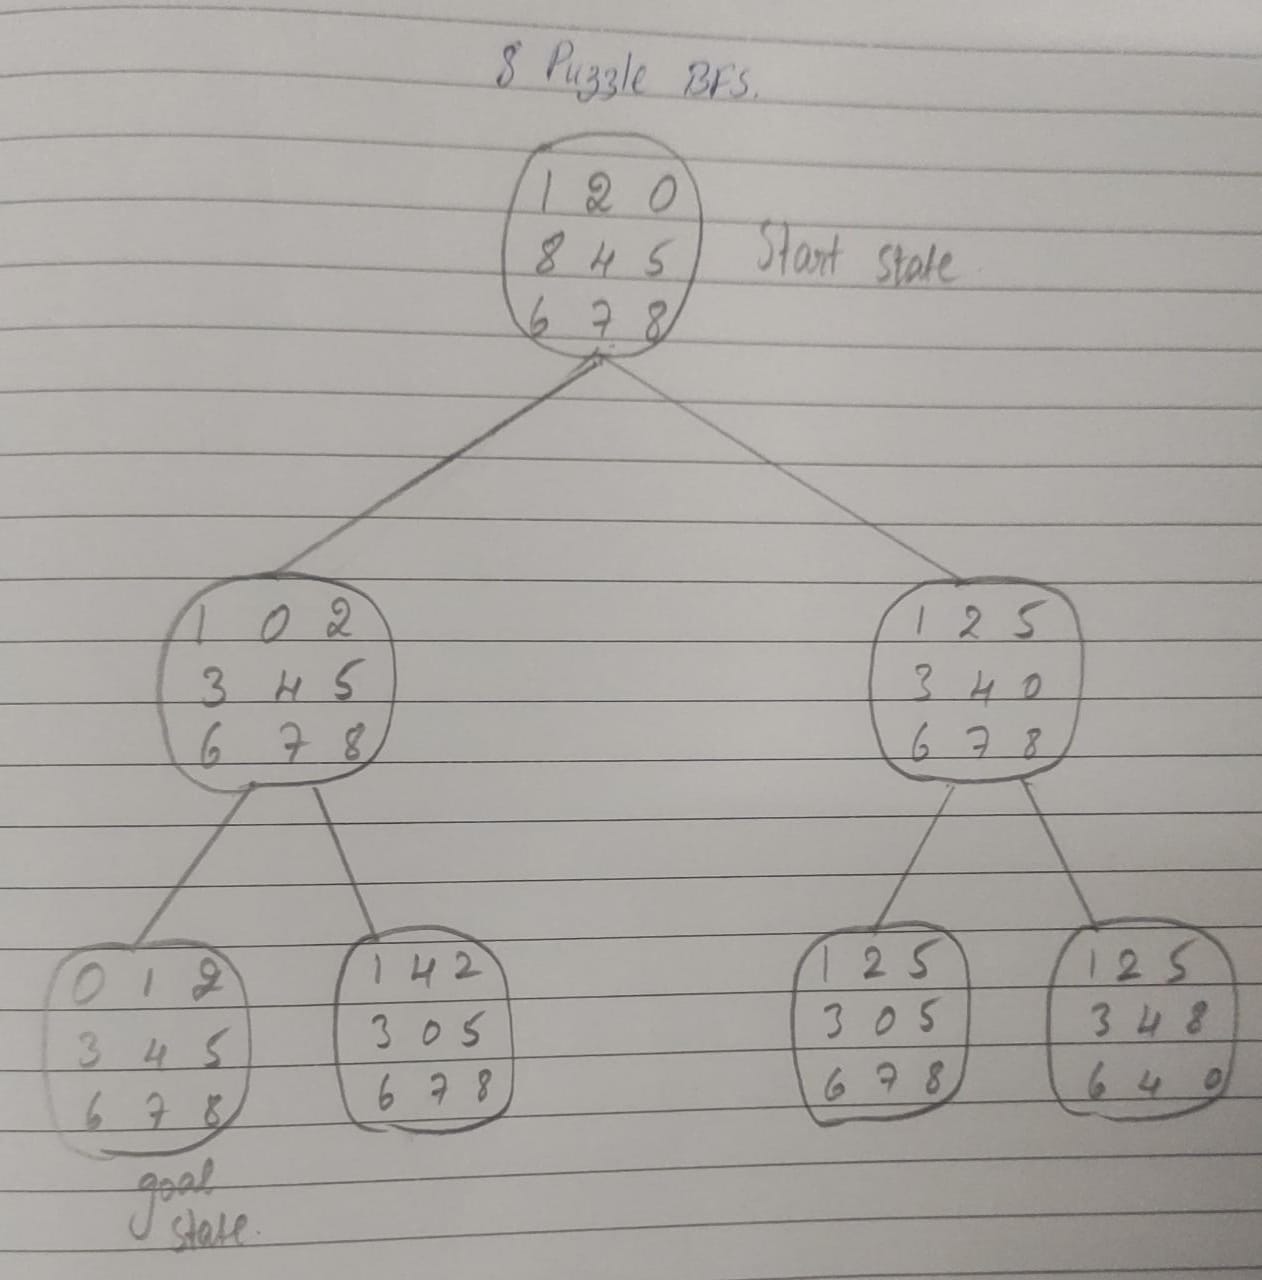 8 Puzzle BFS.
1 2 0
8 4 5
6 7 8
Start state
1 0 2
3 4 5
6 7 8
1 2 5
3 4 0
6 7 8
0 1 2
3 4 5
6 7 8
goal
state.
1 4 2
3 0 5
6 7 8
1 2 5
3 0 5
6 7 8
1 2 5
3 4 8
6 4 0